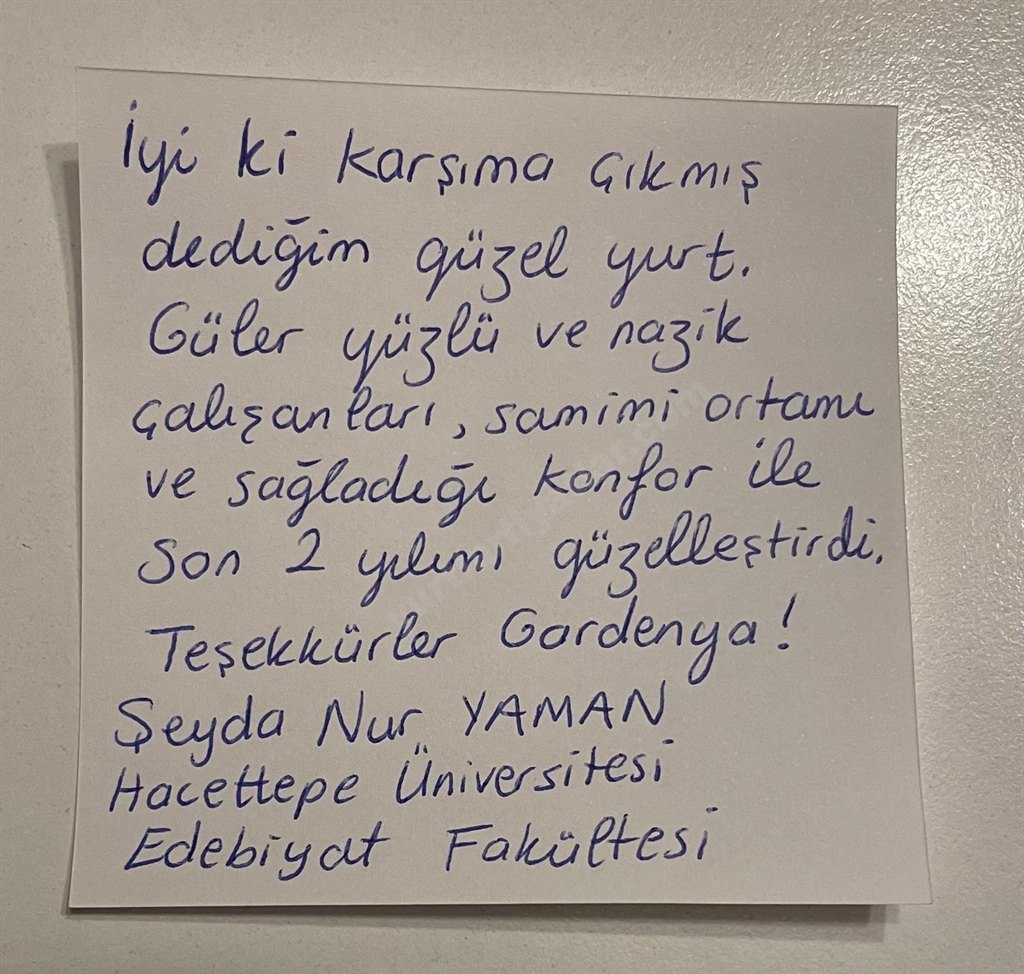 İyi ki karşıma çıkmış
dediğim güzel yurt.
Güler yüzlü ve nazik
çalışanları, samimi ortamı
ve sağladığı konfor ile
son 2 yılımı güzelleştirdi.
Teşekkürler Gardenya!
Şeyda Nur YAMAN
Hacettepe Üniversitesi
Edebiyat Fakültesi